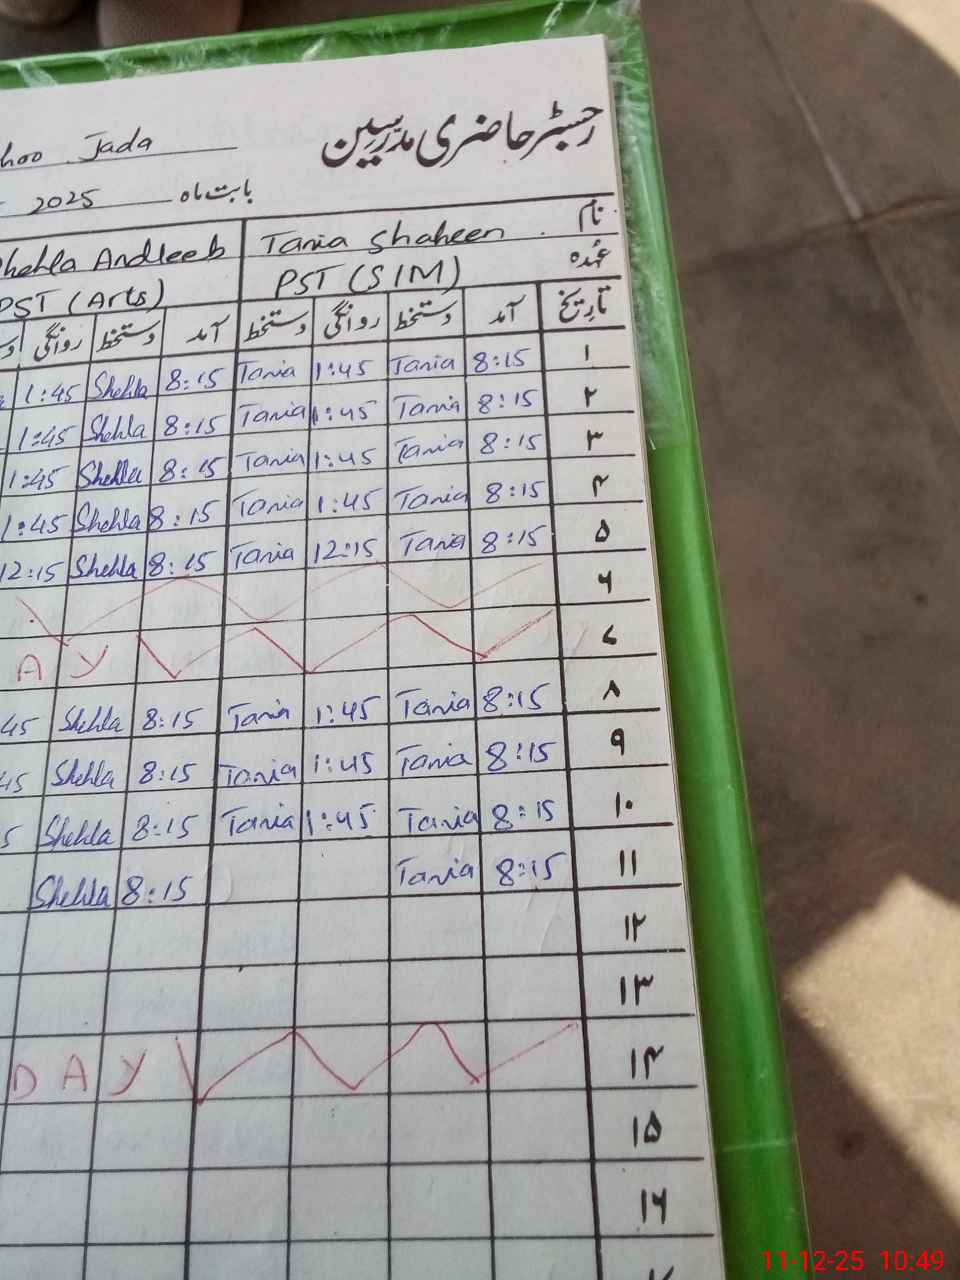 رجسٹر حاضری مدرسین
Jada
بابت ماہ 2025
نام Tania Shaheen Shehla Andleeb
عہدہ PST (SIM) PST (Arts)
تاریخ آمد دستخط روانگی دستخط آمد دستخط روانگی
۱ 8:15 Tania 1:45 Tania 8:15 Shehla 1:45
۲ 8:15 Tania 1:45 Tania 8:15 Shehla 1:45
۳ 8:15 Tania 1:45 Tania 8:15 Shehla 1:45
۴ 8:15 Tania 1:45 Tania 8:15 Shehla 1:45
۵ 8:15 Tania 12:15 Tania 8:15 Shehla 12:15
۶
۷ A Y
۸ 8:15 Tania 1:45 Tania 8:15 Shehla 45
۹ 8:15 Tania 1:45 Tania 8:15 Shehla 45
۱۰ 8:15 Tania 1:45 Tania 8:15 Shehla 5
۱۱ 8:15 Tania 8:15 Shehla
۱۲
۱۳
۱۴ D A Y
۱۵
۱۶
11-12-25 10:49